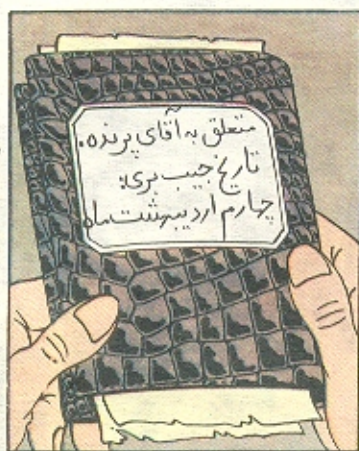 متعلق به آقای پرنده.
تاریخ جیب بری:
چهارم اردیبهشت ماه